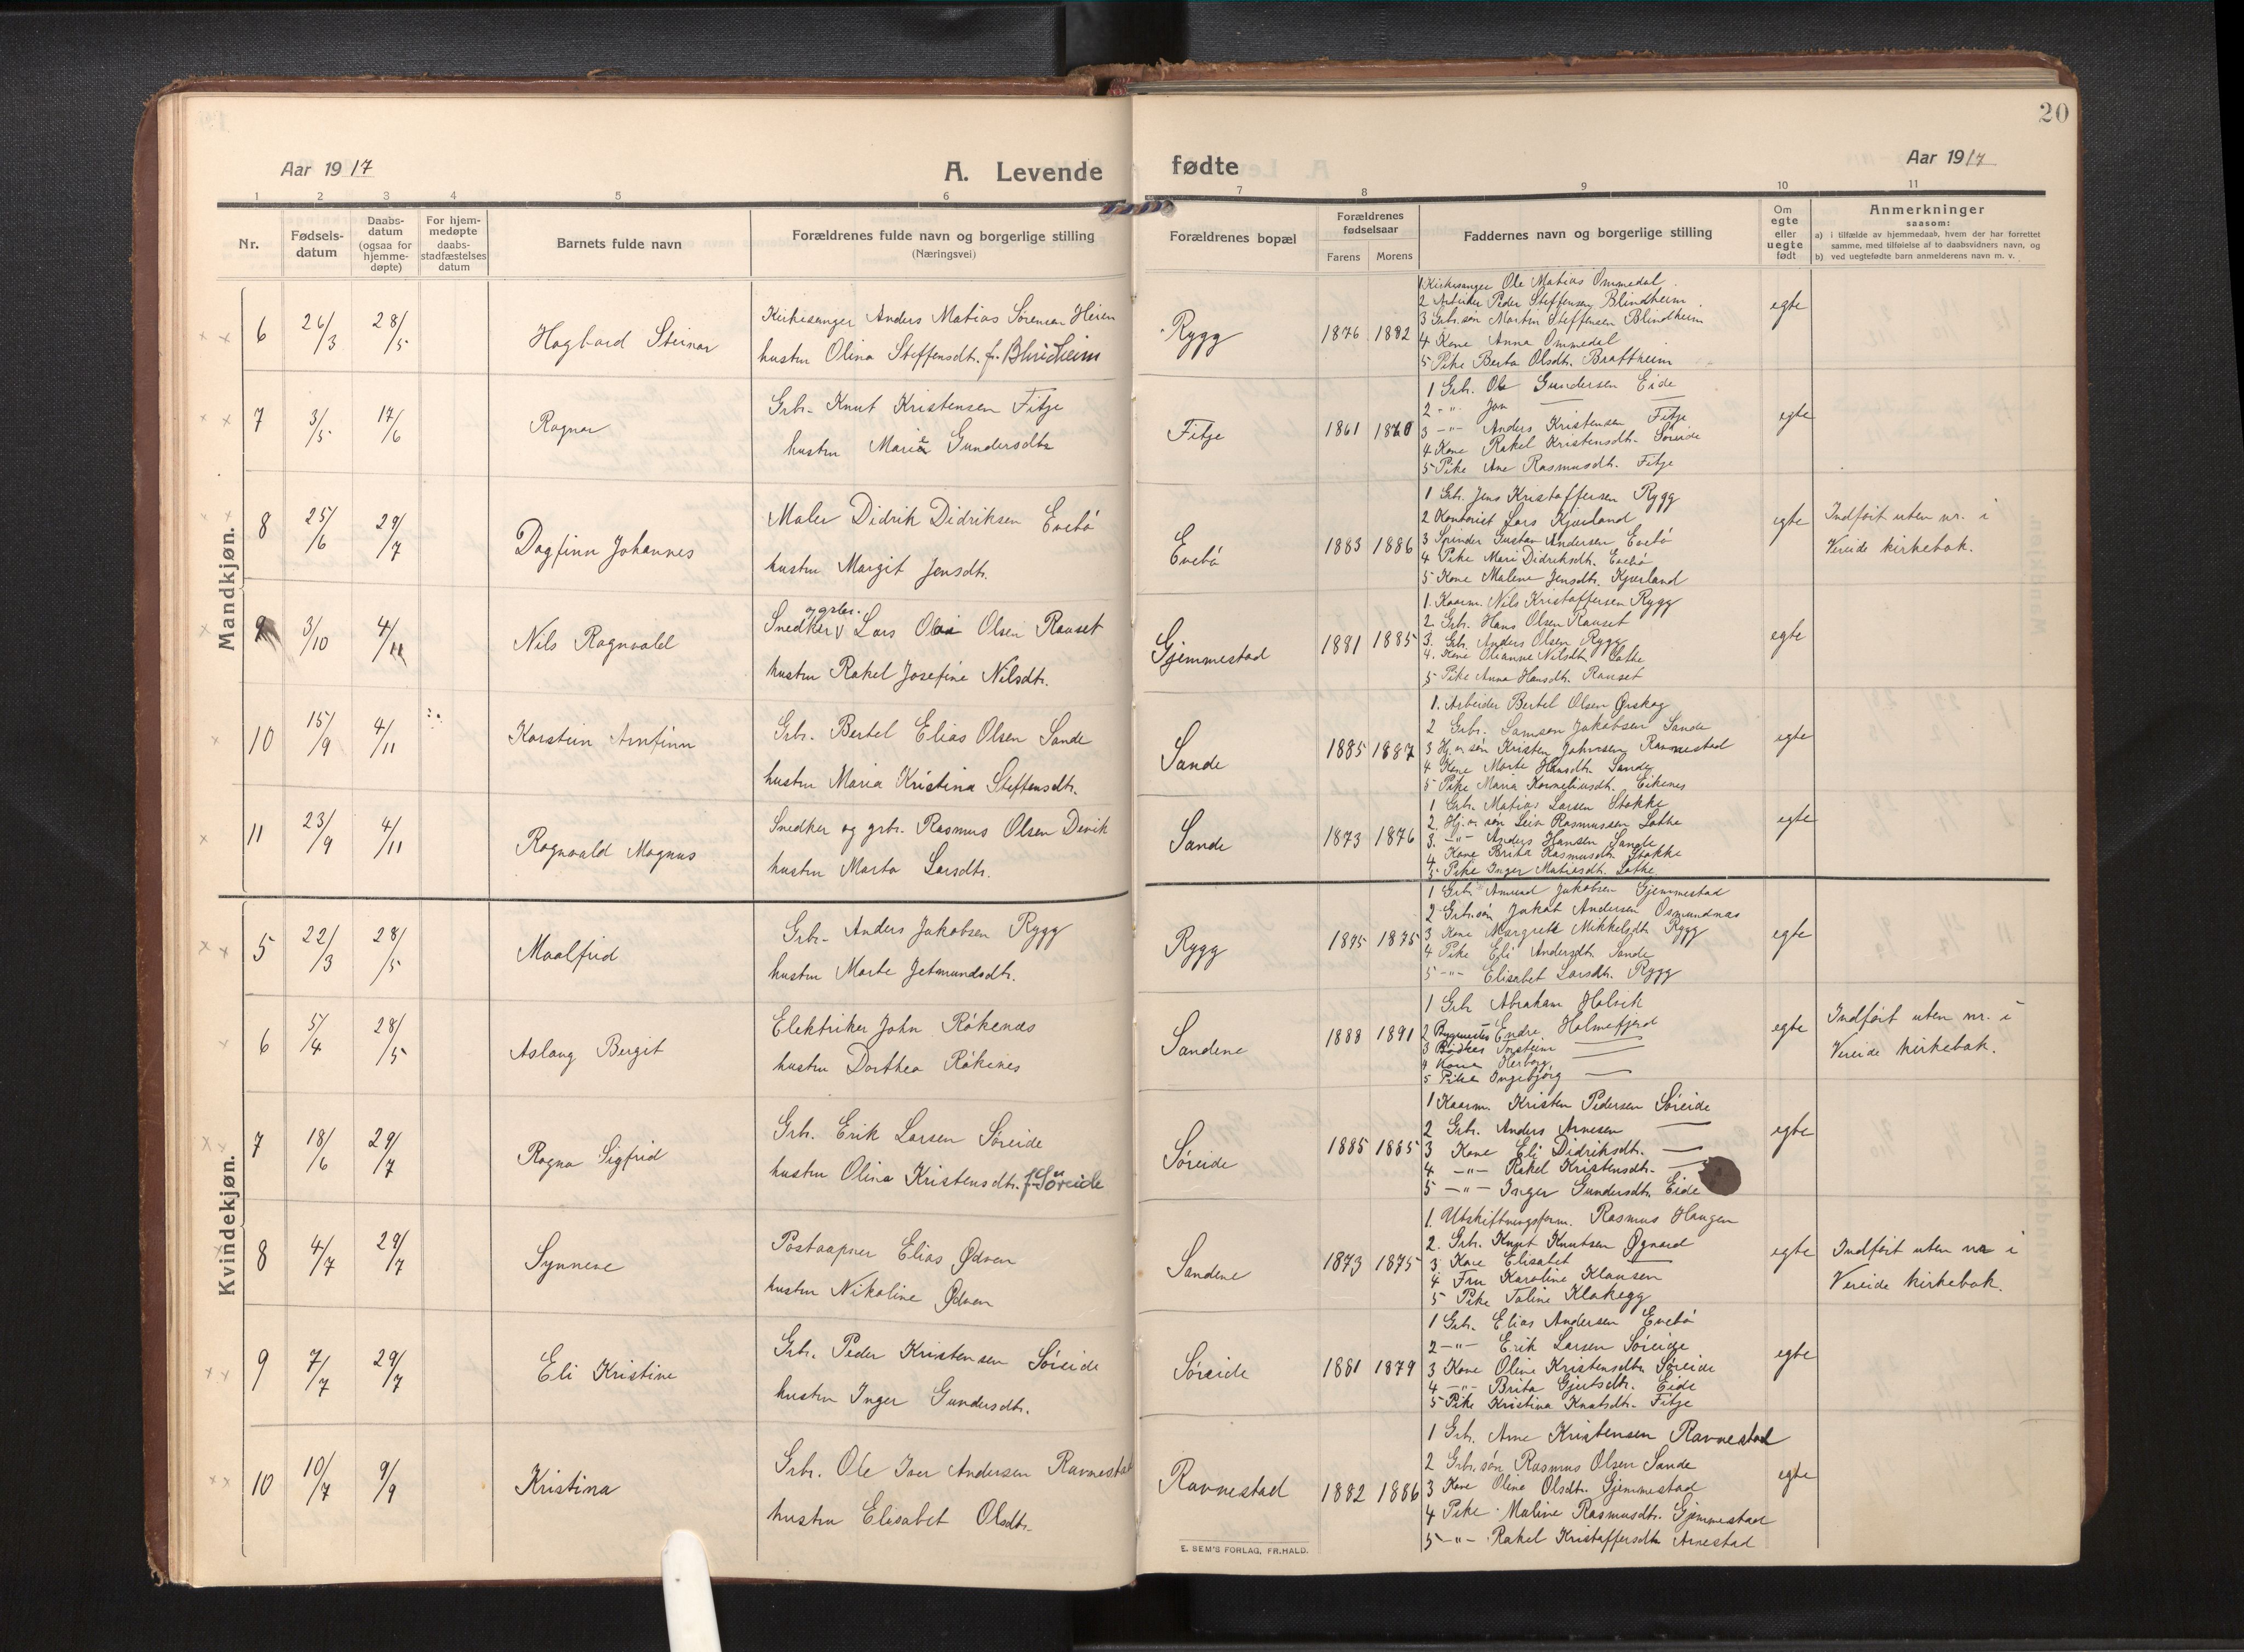 20
Aar 1917
A. Levende fødte
Aar 1917
1 2 3 4 5 6 7 8 9 10 11
Nr.
Fødsels-
datum
Daabs-
datum
(ogsaa for
hjemme-
døpte)
For hjem-
medøpte
daabs-
stadfæstelses
datum
Barnets fulde navn
Forældrenes fulde navn og borgerlige stilling
(Næringsvei)
Forældrenes bopæl
Forældrenes
fødselsaar
Farens Morens
Faddernes navn og borgerlige stilling
Om
egte
eller
uegte
født
Anmerkninger
saasom:
a) i tilfælde av hjemmedaab, hvem der har forrettet
samme, med tilføielse af to daabsvidners navn, og
b) ved uegtefødte barn anmelderens navn m. v.
Mandkjøn.
6 26/3 28/5 Hagbard Steinar
Kirkesanger Anders Matias Sørensen Heien
hustru Olina Steffensdtr. f. Blindheim
Rygg 1876 1882
1 Kirkesanger Ole Matias Ommedal
2 Arbeider Peder Steffensen Blindheim
3 Grbr.søn Martin Steffensen Blindheim
4 Kone Anna Ommedal
5 Pike Berta Olsdtr. Brattheim
egte
7 3/5 17/6 Ragnar
Grbr. Knut Kristensen Fitje
hustru Marie Gundersdtr
Fitje 1861 1870
1 Grbr. Ole Gundersen Eide
2 -"- Jon
3 -"- Anders Kristensen Fitje
4 Kone Rakel Kristensdtr. Søreide
5 Pike Ane Rasmusdtr. Fitje
egte
8 25/6 29/7 Dagfinn Johannes
Maler Didrik Didriksen Evebø
hustru Margit Jensdtr.
Evebø 1883 1886
1 Grbr. Jens Kristoffersen Rygg
2 Kontorist Lars Kjørland
3 Spinder Gustav Andersen Evebø
4 Pike Mari Didriksdtr. Evebø
5 Kone Malene Jensdtr. Kjørland
egte
Indført uten nr. i
Vereide kirkebok.
9 3/10 4/11 Nils Ragnvald
og grbr.
Snedker Lars Olai Olsen Rauset
hustru Rakel Josefine Nilsdtr.
Gjemmestad 1881 1885
1. Kaarm. Nils Kristoffersen Rygg
2 Grbr. Hans Olsen Rauset
3. Grb. Anders Olsen Rygg
4. Kone Olianne Nilsdtr. Lothe
5 Pike Anna Hansdtr. Rauset
egte
10 15/9 4/11 Karstein Arnfinn
Grbr. Bertel Elias Olsen Sande
hustru Maria Kristina Steffensdtr.
Sande 1885 1887
1. Arbeider Bertel Olsen Ørskog
2 Grbr. Samson Jakobsen Sande
3 Hj.v. søn Kristen Johnsen Ravnestad
4 Kone Marte Hansdtr. Sande
5 Pike Maria Korneliusdtr. Eikenes
egte
11 23/9 4/11 Ragnvald Magnus
Snedker og grbr. Rasmus Olsen Devik
hustru Marta Larsdtr.
Sande 1873 1876
1 Grbr. Matias Larsen Stokke
2. Hj.v. søn Leiv Rasmussen Lothe
3. -"- Anders Hansen Sande
4. Kone Brita Rasmusdtr. Stokke
5 Pike Inger Matiasdtr. Lothe
egte
Kvindekjøn.
5 22/3 28/5 Maalfrid
Grbr. Anders Jakobsen Rygg
hustru Marte Jetmundsdtr.
Rygg 1875 1875
1 Grbr. Amund Jakobsen Gjemmestad
2 Grbr.søn Jakob Andersen Osmundnes
3 Kone Margrete Mikkelsdtr. Rygg
4 Pike Eli Andersdtr. Sande
5 -"- Elisabet Larsdtr. Rygg
egte
6 5/4 28/5 Aslaug Bergit
Elektriker John Røkenes
hustru Dorthea Røkenes
Sandene 1888 1891
1 Grbr Abraham Holvik
2 Bygmester Endre Holmefjord
3 Bødker Torstein
4 Kone Herborg
5 Pike Ingebjørg
egte
Indført uten nr. i
Vereide kirkebok.
7 18/6 29/7 Ragna Sigfrid
Grbr. Erik Larsen Søreide
hustru Olina Kristensdtr. f. Søreide
Søreide 1885 1885
1 Kaarm. Kristen Pedersen Søreide
2 Grbr. Anders Arnesen
3 Kone Eli Didriksdtr.
4 -"- Rakel Kristensdtr.
5 -"- Inger Gundersdtr. Eide
egte
8 4/7 29/7 Synneve
Postaapner Elias Ødven
hustru Nikoline Ødven
Sandene 1873 1875
1. Utskiftningsform. Rasmus Haugen
2. Grbr. Knut Knutsen Øgaard
3. Kone Elisabet
4 Fru Karoline Klausen
5 Pike Taline Klakegg
egte
Indført uten nr i
Vereide kirkebok.
9 7/7 29/7 Eli Kristine
Grbr. Peder Kristensen Søreide
hustru Inger Gundersdtr.
Søreide 1881 1879
1 Grbr. Elias Andersen Evebø
2 -"- Erik Larsen Søreide
3 Kone Oline Kristensdtr. Søreide
4 -"- Brita Gjertsdtr. Eide
5 Pike Kristina Knutsdtr. Fitje
egte
10 10/7 9/9 Kristina
Grbr. Ole Iver Andersen Ravnestad
hustru Elisabet Olsdtr.
Ravnestad 1882 1886
1 Grbr. Arne Kristensen Ravnestad
2 Grbr.søn Rasmus Olsen Sande
3 Kone Olina Olsdtr. Gjemmestad
4 Pike Maline Rasmusdtr. Gjemmestad
5 -"- Rakel Kristoffersdtr Arnestad
egte
E. SEM'S FORLAG, FR.HALD.